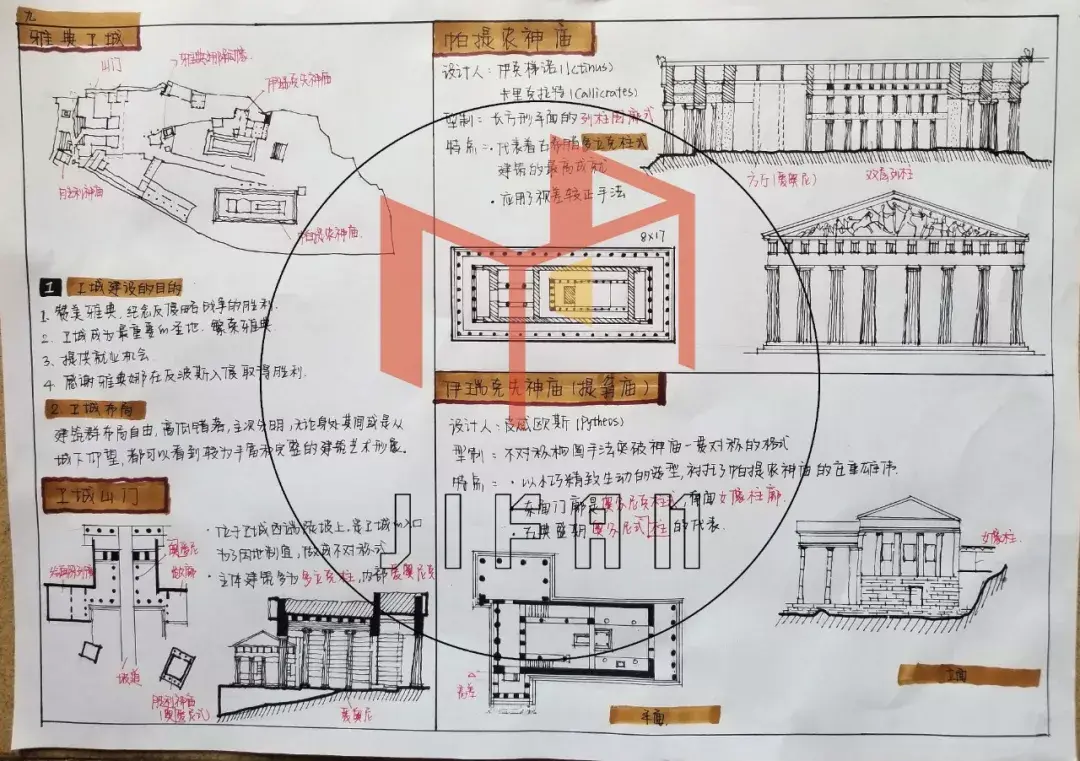 九
雅典卫城
山门
雅典娜雕像
伊瑞克先神庙
胜利神庙
帕提农神庙
1 卫城建设的目的
1. 赞美雅典、纪念反侵略战争的胜利.
2. 卫城成为最重要的圣地. 繁荣雅典.
3. 提供就业机会
4. 感谢雅典娜在反波斯入侵取得胜利.
2. 卫城布局
建筑群布局自由, 高低错落, 主次分明, 无论身处其间或是从
城下仰望, 都可以看到较为丰富和完整的建筑艺术形象.
卫城山门
爱奥尼
敞廊
坡道
胜利神庙
(爱奥尼式)
· 位于卫城西端陡坡上, 是卫城的入口
为了因地制宜, 做成不对称式
· 主体建筑多为多立克柱, 内部爱奥尼克
爱奥尼
帕提农神庙
设计人: 伊克梯诺 (Ictinus)
卡里克拉特 (Callicrates)
型制: 长方形平面的列柱围廊式
特点: · 代表着古希腊多立克柱式
建筑的最高成就
· 应用了视差较正手法
8×17
方厅(爱奥尼)
双层列柱
伊瑞克先神庙 (提翁庙)
设计人: 皮忒欧斯 (Pytheos)
型制: 不对称构图手法突破神庙一贯对称的格式
特点: · 以小巧精致生动的造型, 衬托了帕提农神庙的庄重雄伟.
· 东面门廊是爱奥尼柱式, 南面女像柱廊.
· 古典盛期爱奥尼式柱的代表
女像柱.
立面
平面